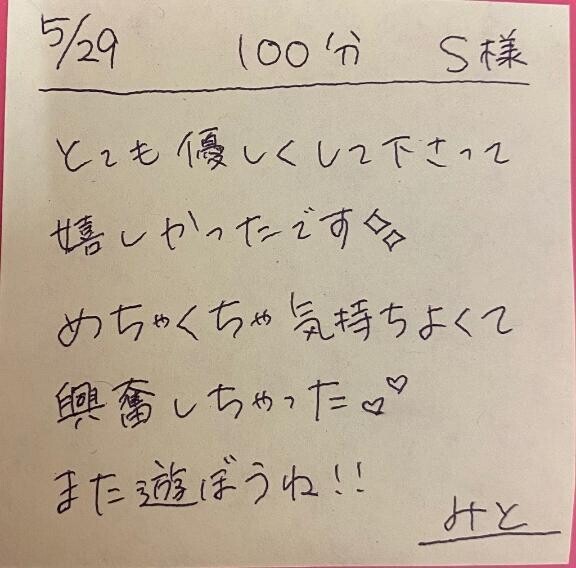 5/29 100分 S様
とても優しくして下さって
嬉しかったです
めちゃくちゃ気持ちよくて
興奮しちゃった♡♡
また遊ぼうね!!
みと